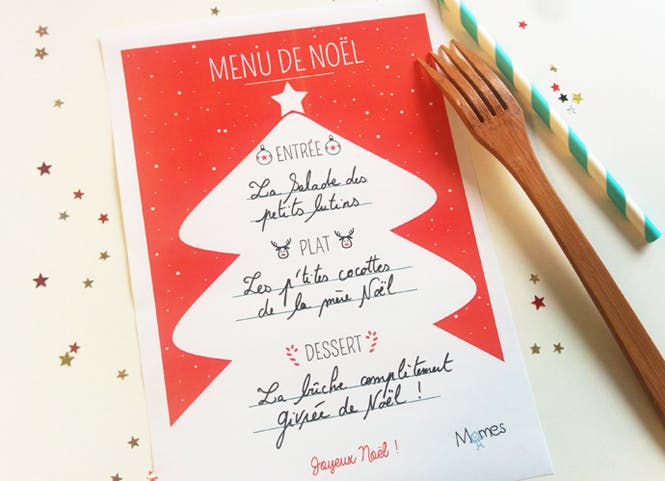 MENU DE NOËL
ENTRÉE
La Salade des
petits lutins
PLAT
Les p'tites cocottes
de la mère Noël
DESSERT
La bûche complètement
givrée de Noël !
Joyeux Noël !
Mômes